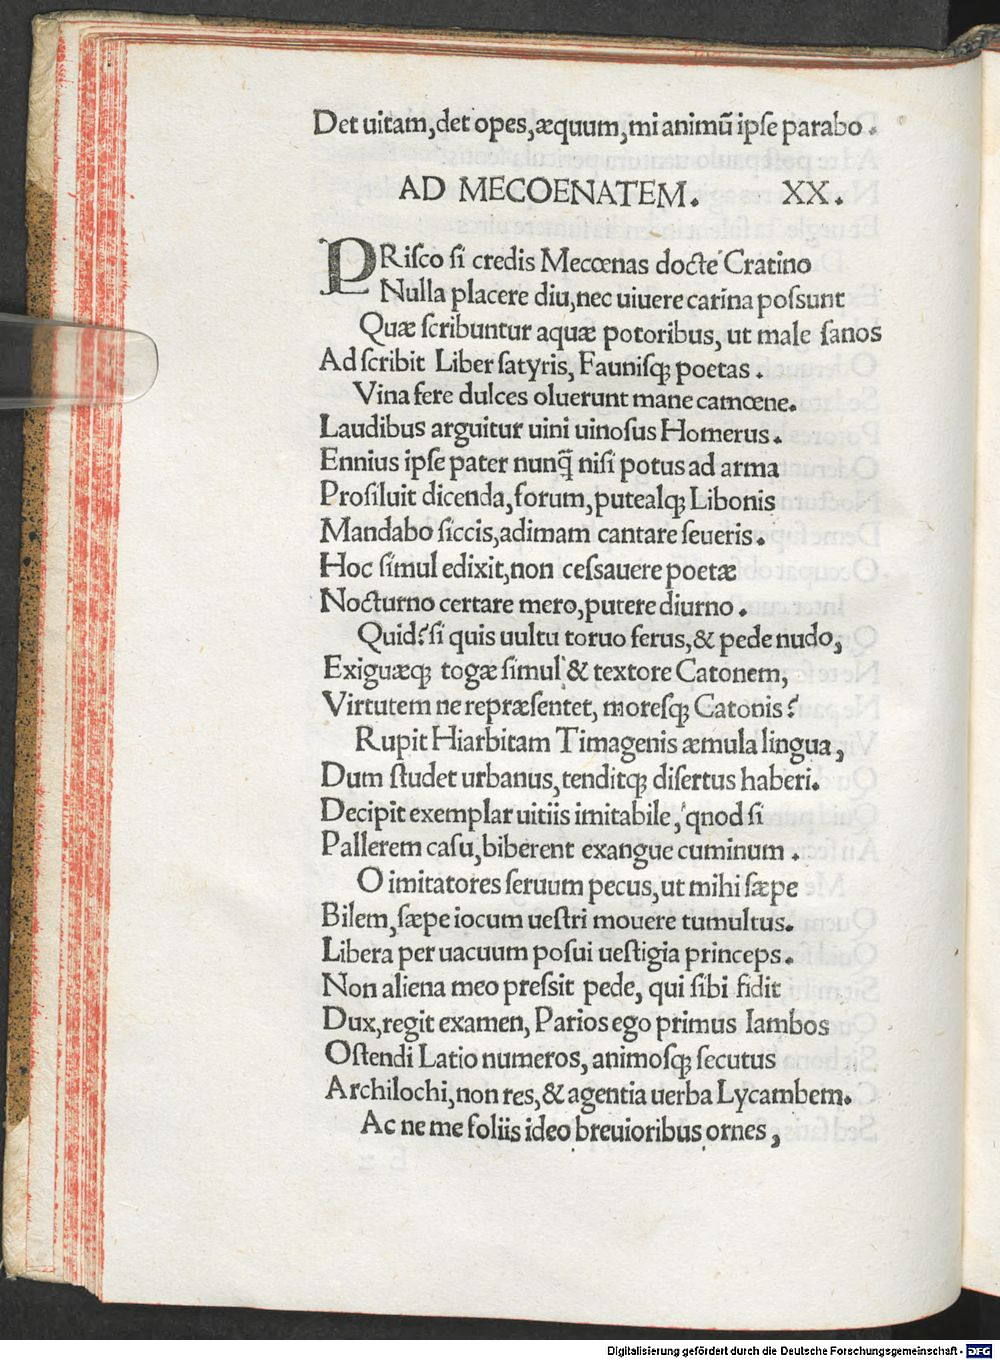 Det uitam, det opes, æquum, mi animũ ipse parabo.
AD MECOENATEM. XX.
PRisco si credis Mecœnas docte Cratino
Nulla placere diu, nec uiuere carina possunt
Quæ scribuntur aquæ potoribus, ut male sanos
Ad scribit Liber satyris, Faunisqꝫ poetas.
Vina fere dulces oluerunt mane camœne.
Laudibus arguitur uini uinosus Homerus.
Ennius ipse pater nunq̃ nisi potus ad arma
Prosiluit dicenda, forum, putealqꝫ Libonis
Mandabo siccis, adimam cantare seueris.
Hoc simul edixit, non cessauere poetæ
Nocturno certare mero, putere diurno.
Quid? si quis uultu toruo ferus, & pede nudo,
Exiguæqꝫ togæ simul & textore Catonem,
Virtutem ne repræsentet, moresqꝫ Catonis?
Rupit Hiarbitam Timagenis æmula lingua,
Dum studet urbanus, tenditqꝫ disertus haberi.
Decipit exemplar uitiis imitabile, qnod si
Pallerem casu, biberent exangue cuminum.
O imitatores seruum pecus, ut mihi sæpe
Bilem, sæpe iocum uestri mouere tumultus.
Libera per uacuum posui uestigia princeps.
Non aliena meo pressit pede, qui sibi fidit
Dux, regit examen, Parios ego primus Iambos
Ostendi Latio numeros, animosqꝫ secutus
Archilochi, non res, & agentia uerba Lycambem.
Ac ne me foliis ideo breuioribus ornes,
Digitalisierung gefördert durch die Deutsche Forschungsgemeinschaft - DFG